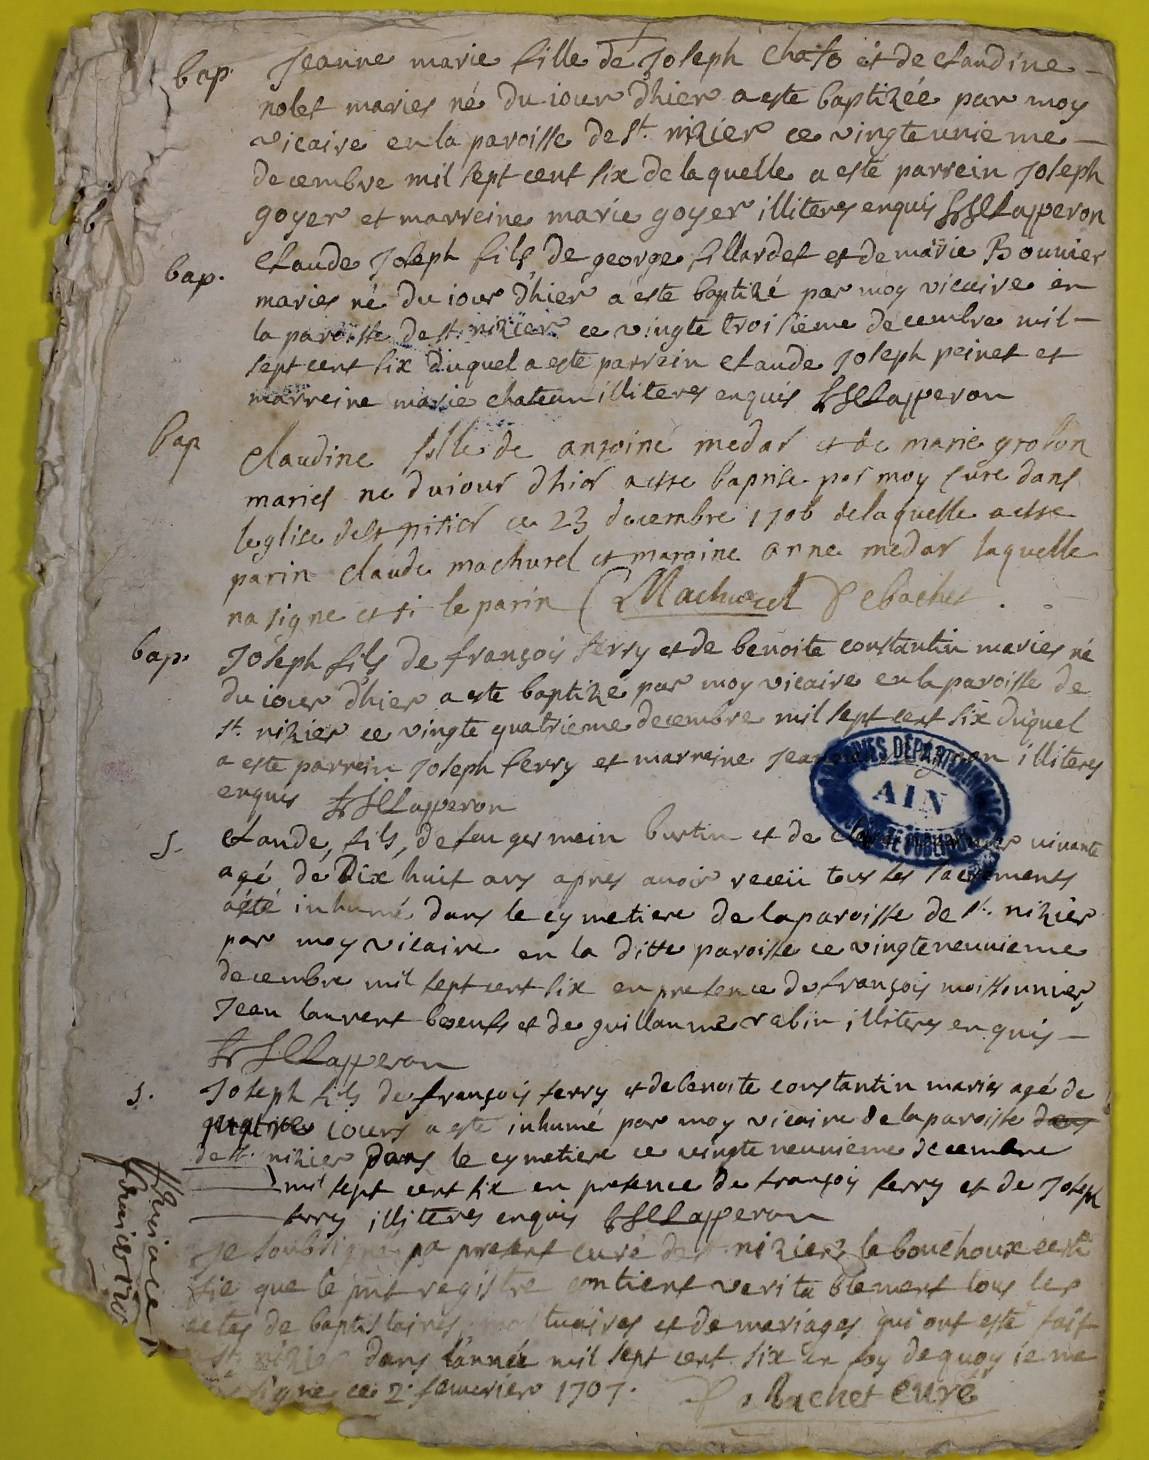 bap. Jeanne marie fille de Joseph et de Claudine
nolet maries né du iour d'hier a este baptizée par moy
vicaire en la paroisse de St. nizier ce vingte unieme
decembre mil sept cent six de laquelle a esté parrein Joseph
goyer et marreine marie goyer illiteres enquis Lapperon
bap. Claude Joseph fils de george fillardet et de marie Bouvier
maries né du iour d'hier a este baptizé par moy vicaire en
la paroisse de st. nizier ce vingte troisieme decembre mil
sept cent six duquel a este parrein Claude Joseph peinet et
marreine marie chateau illiteres enquis Lapperon
bap Claudine fille de antoine medar et de marie
maries ne du iour d'hier a este baptise par moy cure dans
leglise de st nitier ce 23 decembre 1706 de laquelle a este
parin claude machurel et maraine anne medar laquelle
na signe et si le parin Machurel Debachet
bap. Joseph fils de françois ferry et de benoite constantin maries né
du iour d'hier a este baptizé par moy vicaire en la paroisse de
st. nizier ce vingte quatrieme decembre mil sept cent six duquel
a este parrein Joseph ferry et marreine illiteres
enquis Lapperon
S. Claude, fils, de feu germein burtin et de vivante
agé de Dix huit ans apres avoir receü tous les sacrements
a été inhumé dans le cymetiere de la paroisse de st. nizier
par moy vicaire en la ditte paroisse ce vingte neuvieme
decembre mil sept cent six en presence de françois moissonnier,
Jean laurent boeuf et de guillaume rabin illiteres enquis
Lapperon
S. Joseph fils de françois ferry et de benoite constantin maries agé de
quatre iours a este inhumé par moy vicaire de la paroisse dans
de st. nizier dans le cymetiere ce vingte neuvieme decembre
mil sept cent six en presence de françois ferry et de Joseph
ferry illiteres enquis Lapperon
Je soubsigné pa present curé de nizier le bouchoux certi
fie que le pnt registre contient verita blement tous les
actes de baptistaires tuaires et de mariages qui ont esté fait
st. nizier dans l'année mil sept cent six en foy de quoy ie me
signe ce 2. feuvrier 1707. Bachet Curé
ARCHIVES DÉPARTEMENTALES
AIN